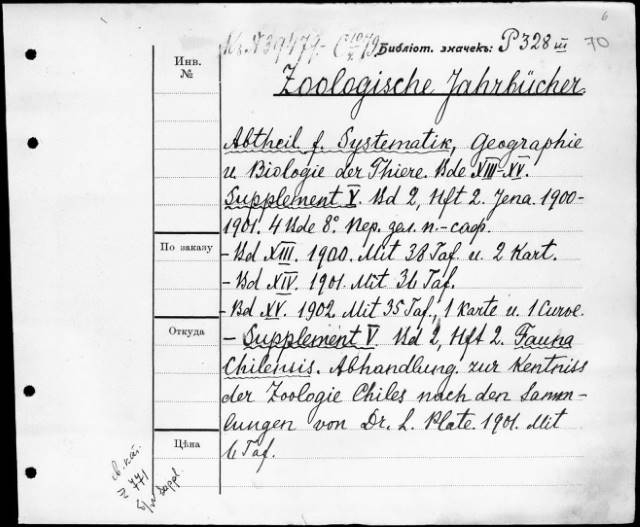 6
Библіот. значекъ: P 328 III 70
Инв.
№
Zoologische Jahrbücher
Abtheil. f. Systematik, Geographie
u. Biologie der Thiere. Bde XIII-XV.
Supplement V. Bd 2, Hft 2. Jena. 1900-
1901. 4 Bde 8°. Пер. зел. п.-саф.
По заказу
- Bd XIII. 1900. Mit 38 Taf. u. 2 Kart.
- Bd XIV. 1901. Mit 36 Taf.
- Bd XV. 1902. Mit 35 Taf., 1 Karte u. 1 Curve.
Откуда
- Supplement V. Bd 2, Hft 2. Fauna
Chilensis. Abhandlung. zur Kentniss
der Zoologie Chiles nach den Samm-
lungen von Dr. L. Plate. 1901. Mit
Цѣна
6 Taf.
св. кат.
№ 771
Suppl.